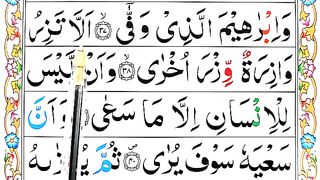 وَاِبْرٰهِيْمَ الَّذِىْ وَفّٰىٓ ۙ﴿۳۷﴾ اَلَّا تَزِرُ
وَازِرَةٌ وِّزْرَ اُخْرٰى ۙ﴿۳۸﴾ وَاَنْ لَّيْسَ
لِلْاِنْسَانِ اِلَّا مَا سَعٰى ۙ﴿۳۹﴾ وَاَنَّ
سَعْيَهٗ سَوْفَ يُرٰى ۪﴿۴۰﴾ ثُمَّ يُجْزٰىهُ